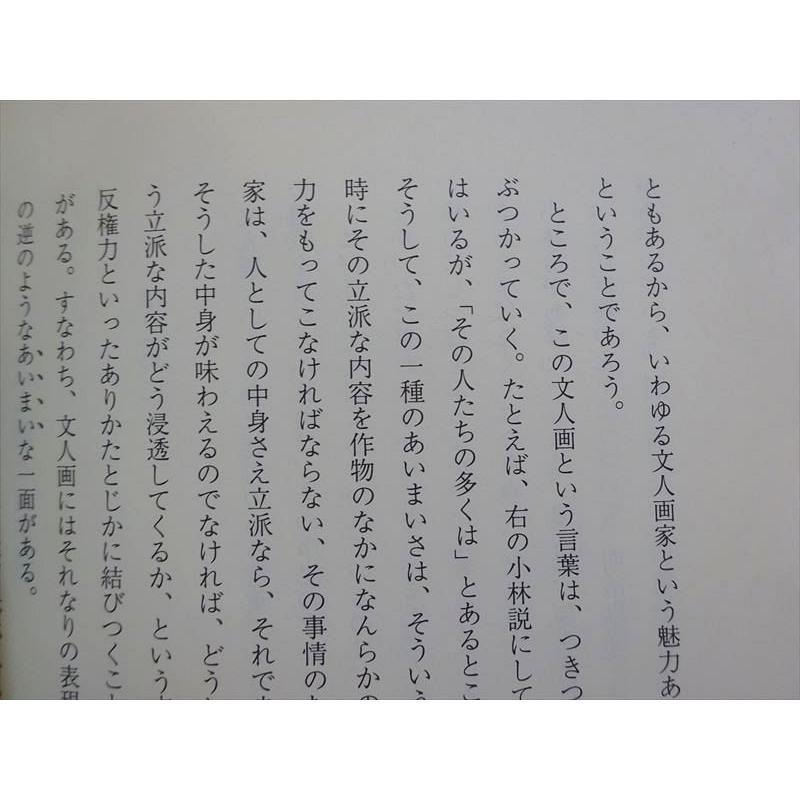 ともあるから、いわゆる文人画家という魅力あ
ということであろう。
ところで、この文人画という言葉は、つきつ
ぶつかっていく。たとえば、右の小林説にして
はいるが、「その人たちの多くは」とあるとこ
そうして、この一種のあいまいさは、そういう
時にその立派な内容を作物のなかになんらかの
力をもってこなければならない、その事情の
家は、人としての中身さえ立派なら、それで
そうした中身が味わえるのでなければ、どう
う立派な内容がどう浸透してくるか、という
反権力といったありかたとじかに結びつくこ
がある。すなわち、文人画にはそれなりの表現
の逆のようなあいまいな一面がある。